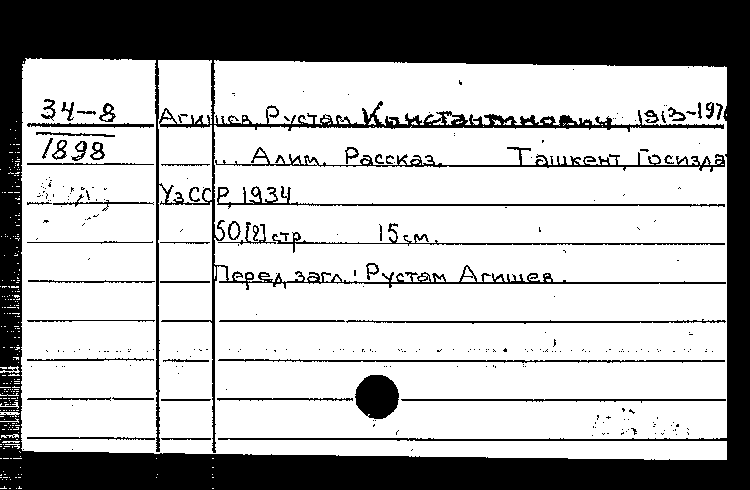 34-8
1898
Агишев, Рустам Константинович, 1913-197
... Алим. Рассказ. Ташкент, Госизда
УзССР, 1934
50,[2] стр. 15 см.
Перед загл.: Рустам Агишев.